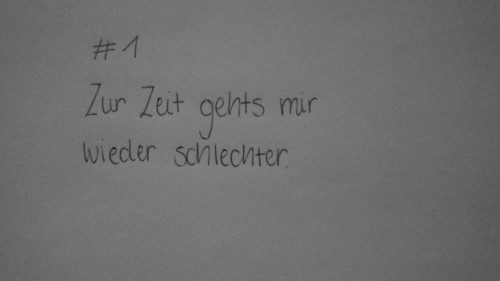 #1
Zur Zeit gehts mir
wieder schlechter.